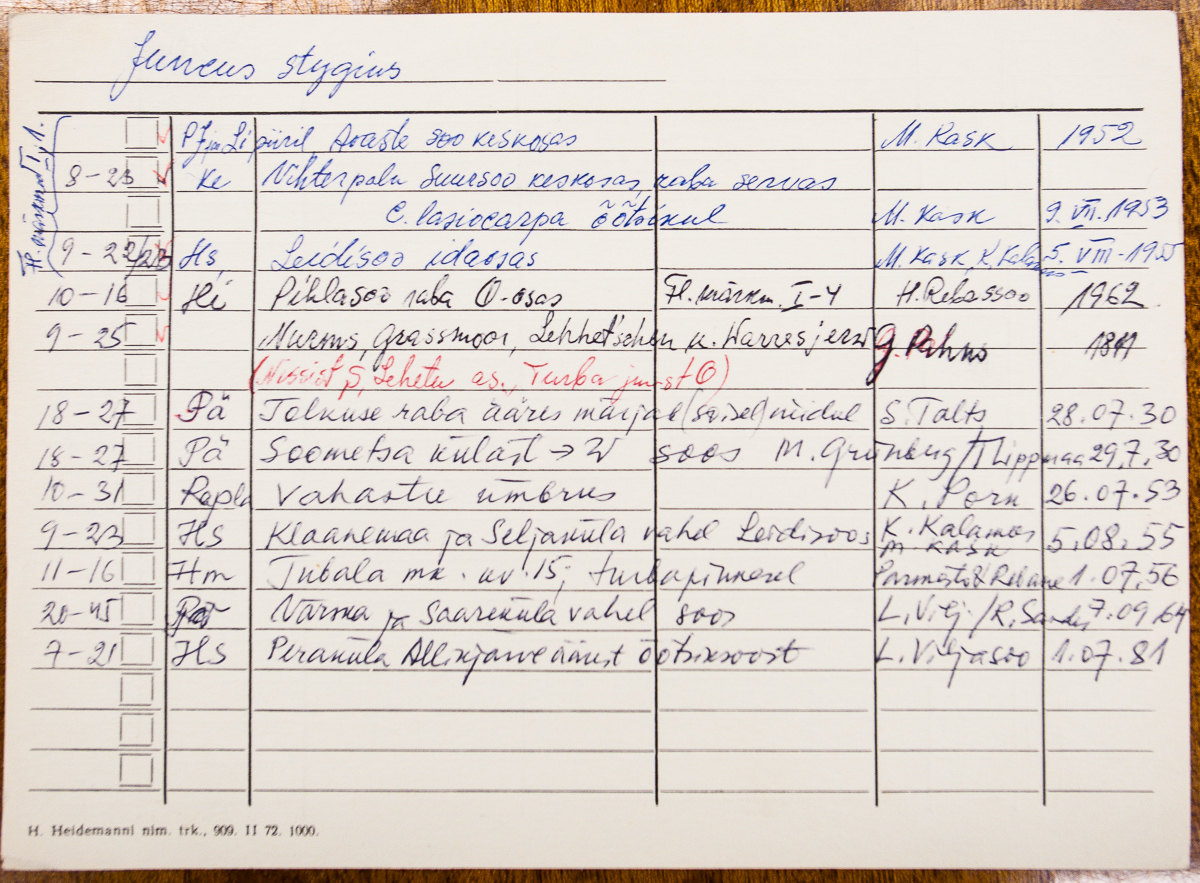 Juncus stygius
Fl. märkmed I, 1.
PJ ja Li piiril, Avaste soo keskosas M. Kask 1952
8-23 Ke Vihterpalu Suursoo keskosas, raba servas
C. lasiocarpa õõtsikul M. Kask 9. VII. 1953
9-22/23 Hs Leidisoo idaosas M. Kask, K. Kalamees 5. VIII-1955
10-16 Hi Pihlasoo raba O-osas Fl. märkm. I-4 H. Rebassoo 1962.
9-25 Murms, Grassmoor, Lehhet'schen u. Warresjerw G. Pahns
(Nissist S, Lehetu as., Turba j O)
18-27 Pä Tolkuse raba ääres märjal (soisel) niidul S. Talts 28.07.30
18-27 Pä Soometsa külast → W soos M. Grünberg/T Lippmaa 29.7.30
10-31 Rapla Vahastu ümbrus K. Porn 26.07.53
9-23 HS Klaanemaa ja Seljaküla vahel Leidisoos K. Kalamees M. Kask 5.08.55
11-16 Hm Tubala mk. kv. 15; turbapinnasel Parmasto & Rebane 1.07.56
20-45 Närma ja Saareküla vahel soos L. Vilj./R. 7.09.64
7-21 HS Peraküla Allikjärve äärest õõtsiksoost L. Viljasoo 1.07.81
H. Heidemanni nim. trk., 909. II 72. 1000.